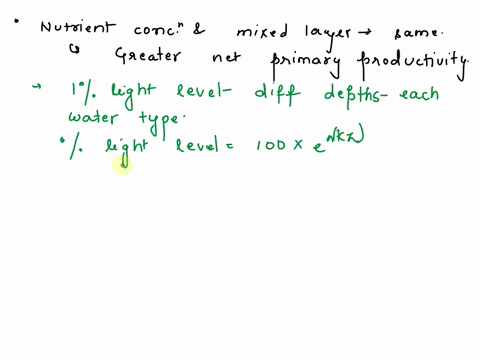 • Nutrient conc.ⁿ & mixed layer → same.
↳ Greater net primary productivity.
→ 1% light level- diff depths- each
water type.
% light level = 100 × e^(-kz)